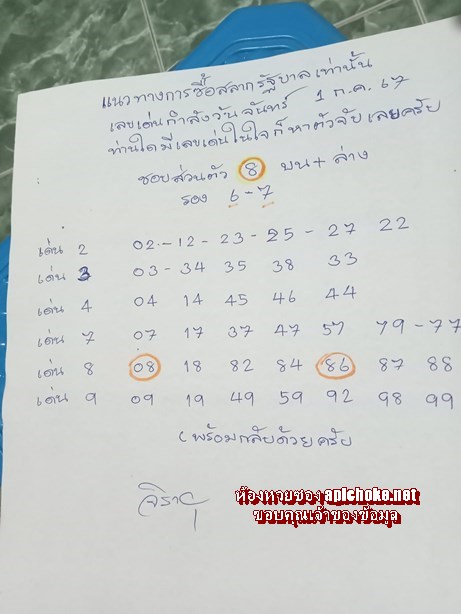 แนวทางการซื้อสลากรัฐบาลเท่านั้น
เลขเด่นกำลังวันจันทร์ 1 ก.ค. 67
ท่านใดมีเลขเด่นในใจก็หาตัวจับเลยครับ
ชอบส่วนตัว 8 บน + ล่าง
รอง 6 - 7
เด่น 2 02 - 12 - 23 - 25 - 27 22
เด่น 3 03 - 34 35 38 33
เด่น 4 04 14 45 46 44
เด่น 7 07 17 37 47 57 79 - 77
เด่น 8 08 18 82 84 86 87 88
เด่น 9 09 19 49 59 92 98 99
(พร้อมกลับด้วยครับ
ห้องหวยซอง apichoke.net
ขอบคุณเจ้าของข้อมูล